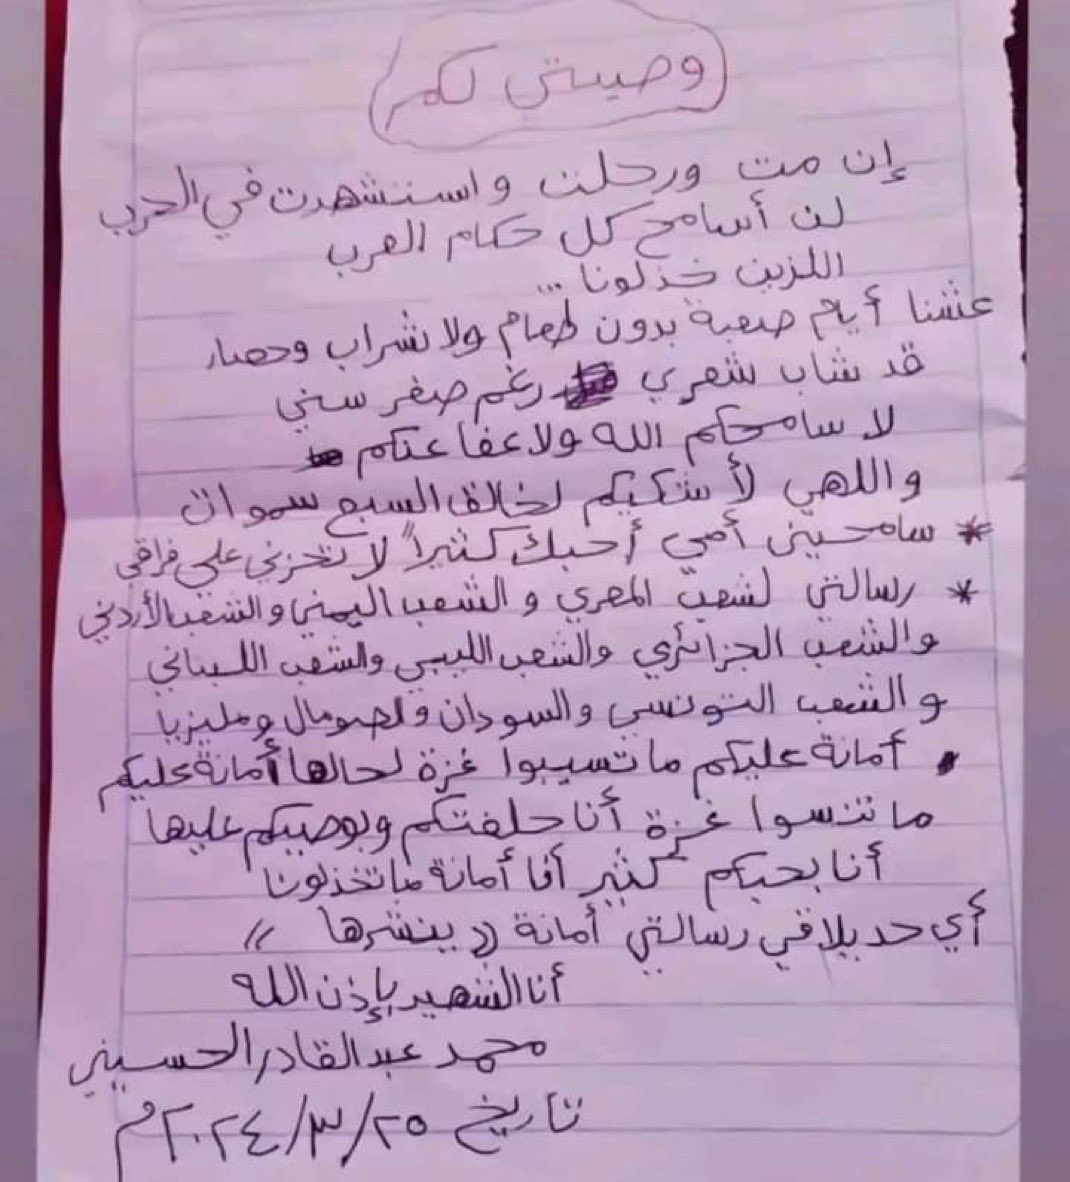 وصيتي لكم
إن مت ورحلت واستشهدت في الحرب
لن أسامح كل حكام العرب
اللزين خذلونا ...
عشنا أيام صعبة بدون طعام ولا شراب وحصار
قد شاب شعري رغم صغر سني
لا سامحكم الله ولا عفا عنكم
واللهي لأشكيكم لخالق السبع سموات
* سامحيني أمي أحبك كثيراً لا تحزني على فراقي
* رسالتي لشعب المصري و الشعب اليمني و الشعب الأردني
والشعب الجزائري والشعب الليبي والشعب اللبناني
والشعب التونسي والسودان ولصومال ومليزيا
. أمانة عليكم ما تسيبوا غزة لحالها أمانة عليكم
ما تنسوا غزة أنا حلفتكم وبوصيكم عليها
أنا بحبكم كثير أنا أمانة ما تخذلونا
أي حد يلاقي رسالتي أمانة (( ينشرها ))
أنا الشهيد بإذن الله
محمد عبد القادر الحسيني
تاريخ ٢٠٢٤/٣/٢٥م